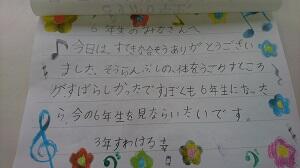 6年生のみなさんへ
今日は、すてきな会をありがとうござい
ました。そうらんぶしの、体をうごかすところ
がすばらしかったですぼくも6年生になった
ら、今の6年生を見ならいたいです。
3年すわはろ